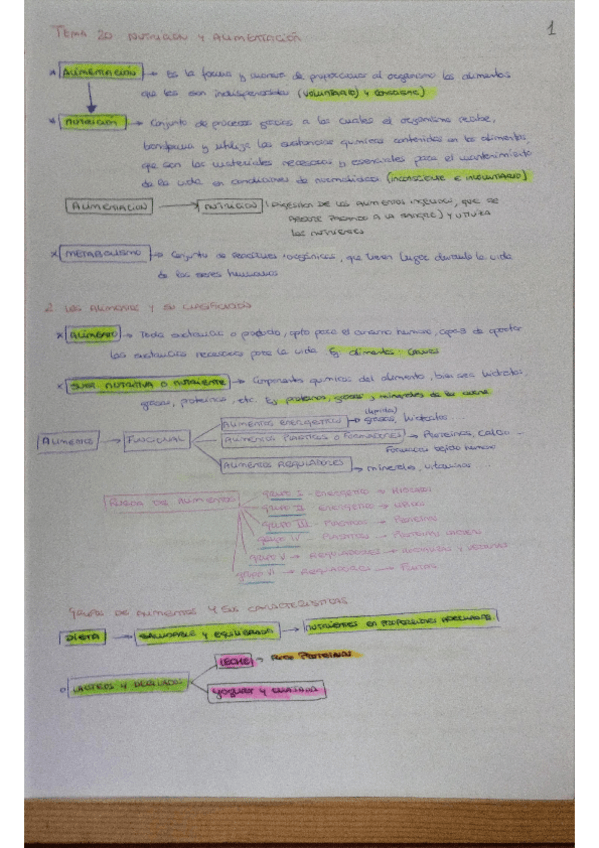 TEMA 20 NUTRICION Y ALIMENTACIÓN
1
* ALIMENTACIÓN → Es la forma y manera de proporcionar al organismo los alimentos
que les son indispensables (VOLUNTARIO) y CONSCIENTE)
* NUTRICIÓN → Conjunto de procesos gracias a los cuales el organismo recibe,
transforma y utiliza las sustancias químicas contenidas en los alimentos
que son los materiales necesarios y esenciales para el mantenimiento
de la vida en condiciones de normalidad. (INCONSCIENTE E INVOLUNTARIO)
ALIMENTACION → NUTRICIÓN : DIGESTION DE LOS ALIMENTOS INGERIDOS, QUE SE
PASANDO A LA SANGRE) Y UTILIZA
LOS NUTRIENTES
* METABOLISMO → Conjunto de reacciones que tienen lugar durante la vida
de los seres humanos
2 LOS ALIMENTOS Y SU CLASIFICACIÓN
* ALIMENTO → Toda sustancia o producto, apto para el consumo humano, capaz de aportar
las sustancias necesarias para la vida. Ej alimentos: carnes
* SUST. NUTRITIVA O NUTRIENTE → Componentes químicos del alimento, bien sea hidratos,
grasas, proteínas, etc. Ej proteínas, grasas y minerales de la carne
ALIMENTOS → FUNCIONAL
ALIMENTOS ENERGETICOS → grasas, hidratos ...
(lípidos)
ALIMENTOS PLASTICOS O FORMADORES → Proteínas, calcio ...
Forman tejido humano
ALIMENTOS REGULADORES → minerales, vitaminas ...
RUEDA DE ALIMENTOS
grupo I - ENERGETICO → HIDRATOS
grupo II - ENERGETICO → LIPIDOS
grupo III - PLASTICOS → PROTEINAS
grupo IV - PLASTICOS → PROTEINAS
grupo V → REGULADORES → HORTALIZAS Y VERDURAS
grupo VI → REGULADORES → FRUTAS
GRUPOS DE ALIMENTOS Y SUS CARACTERISTICAS
DIETA → SALUDABLE Y EQUILIBRADA → NUTRIENTES EN PROPORCIONES ADECUADAS.
LECHE → PROTEINAS
LACTEOS Y DERIVADOS
YOGURT Y CUAJADA